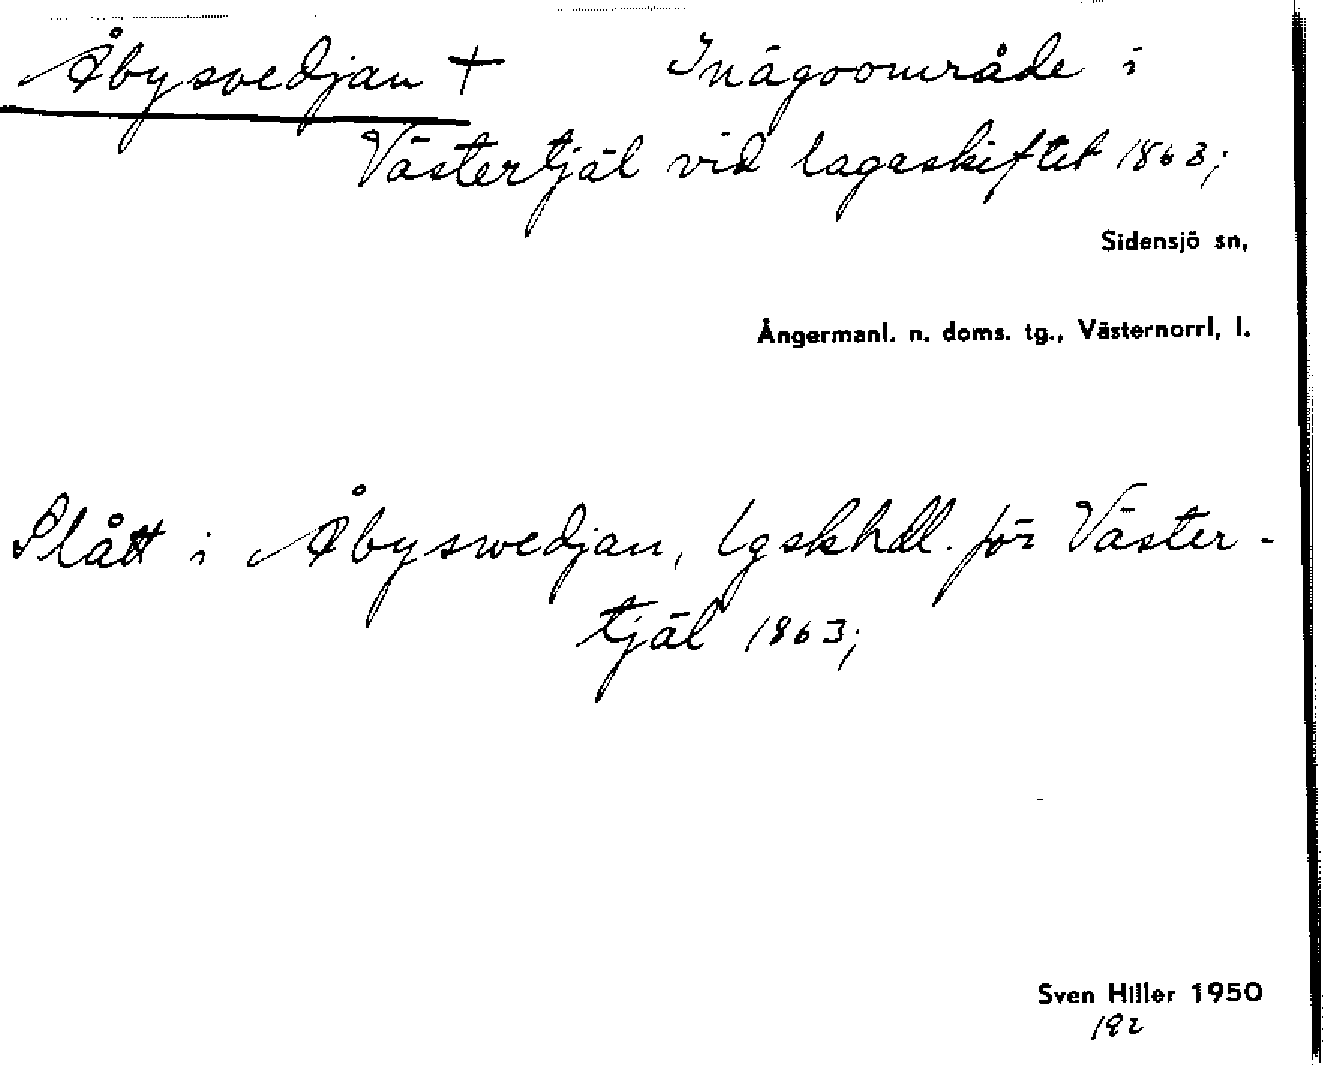 Åbysvedjan + Inägoområde i
Västertjäl vid lagaskiftet 1863;
Sidensjö sn,
Ångermanl. n. doms. tg., Västernorrl, l.
Slått i Åbyswedjan, lgskhdl. för Väster-
tjäl 1863;
Sven Hiller 1950
192